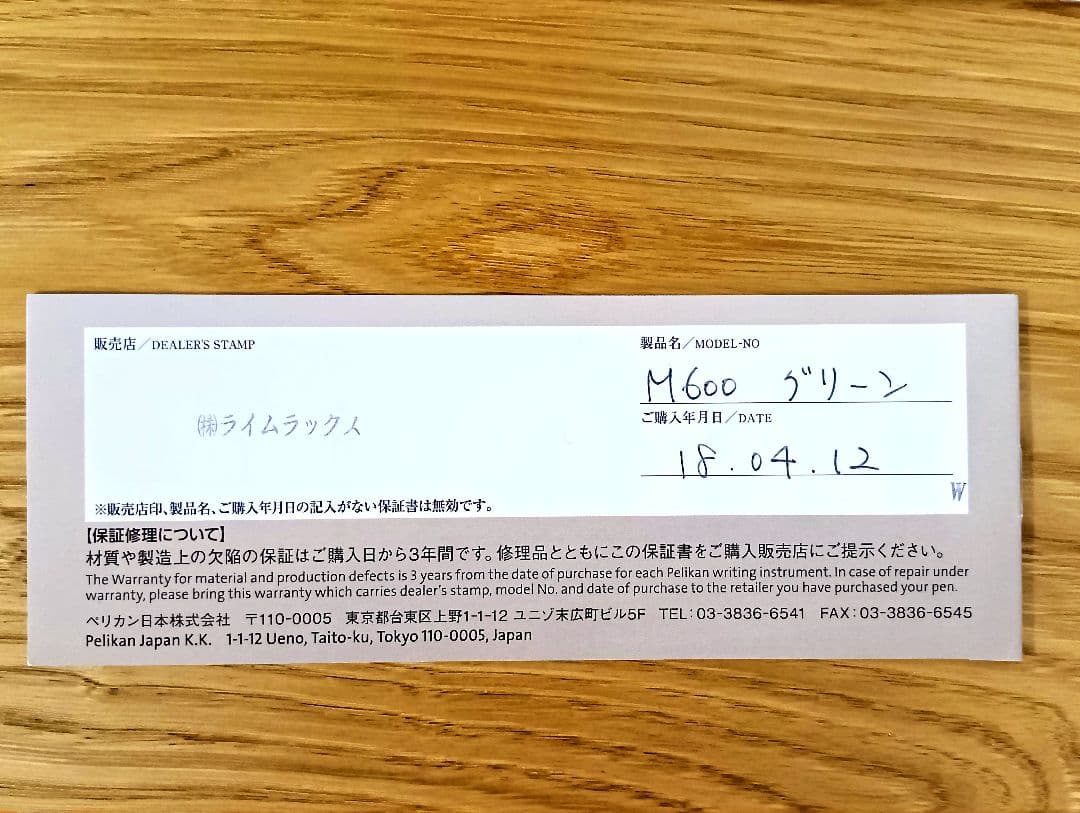 販売店／DEALER'S STAMP
㈱ライムラックス
※販売店印、製品名、ご購入年月日の記入がない保証書は無効です。
製品名／MODEL-NO
M600 グリーン
ご購入年月日／DATE
18.04.12
W
【保証修理について】
材質や製造上の欠陥の保証はご購入日から3年間です。修理品とともにこの保証書をご購入販売店にご提示ください。
The Warranty for material and production defects is 3 years from the date of purchase for each Pelikan writing instrument. In case of repair under
warranty, please bring this warranty which carries dealer's stamp, model No. and date of purchase to the retailer you have purchased your pen.
ペリカン日本株式会社 〒110-0005 東京都台東区上野1-1-12 ユニゾ末広町ビル5F TEL:03-3836-6541 FAX:03-3836-6545
Pelikan Japan K.K. 1-1-12 Ueno, Taito-ku, Tokyo 110-0005, Japan